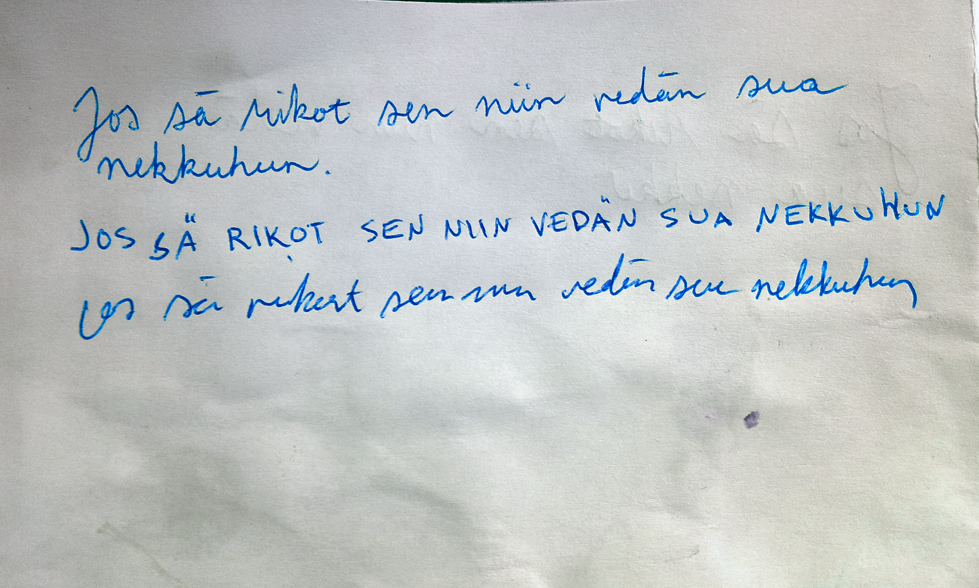 Jos sä rikot sen niin vedän sua
nekkuhun.
JOS SÄ RIKOT SEN NIIN VEDÄN SUA NEKKUHUN
Jos sä rikot sen niin vedän sua nekkuhun